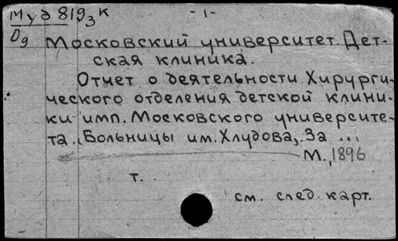 Муд 819з К
-1-
Д9
Московский университет. Дет-
ская клиника.
Отчет о деятельности Хирурги-
ческого отделения детской клини-
ки имп. Московского университе-
та. Больницы им. Хлудова, За ...
М., 1896
т.
см. след. карт.